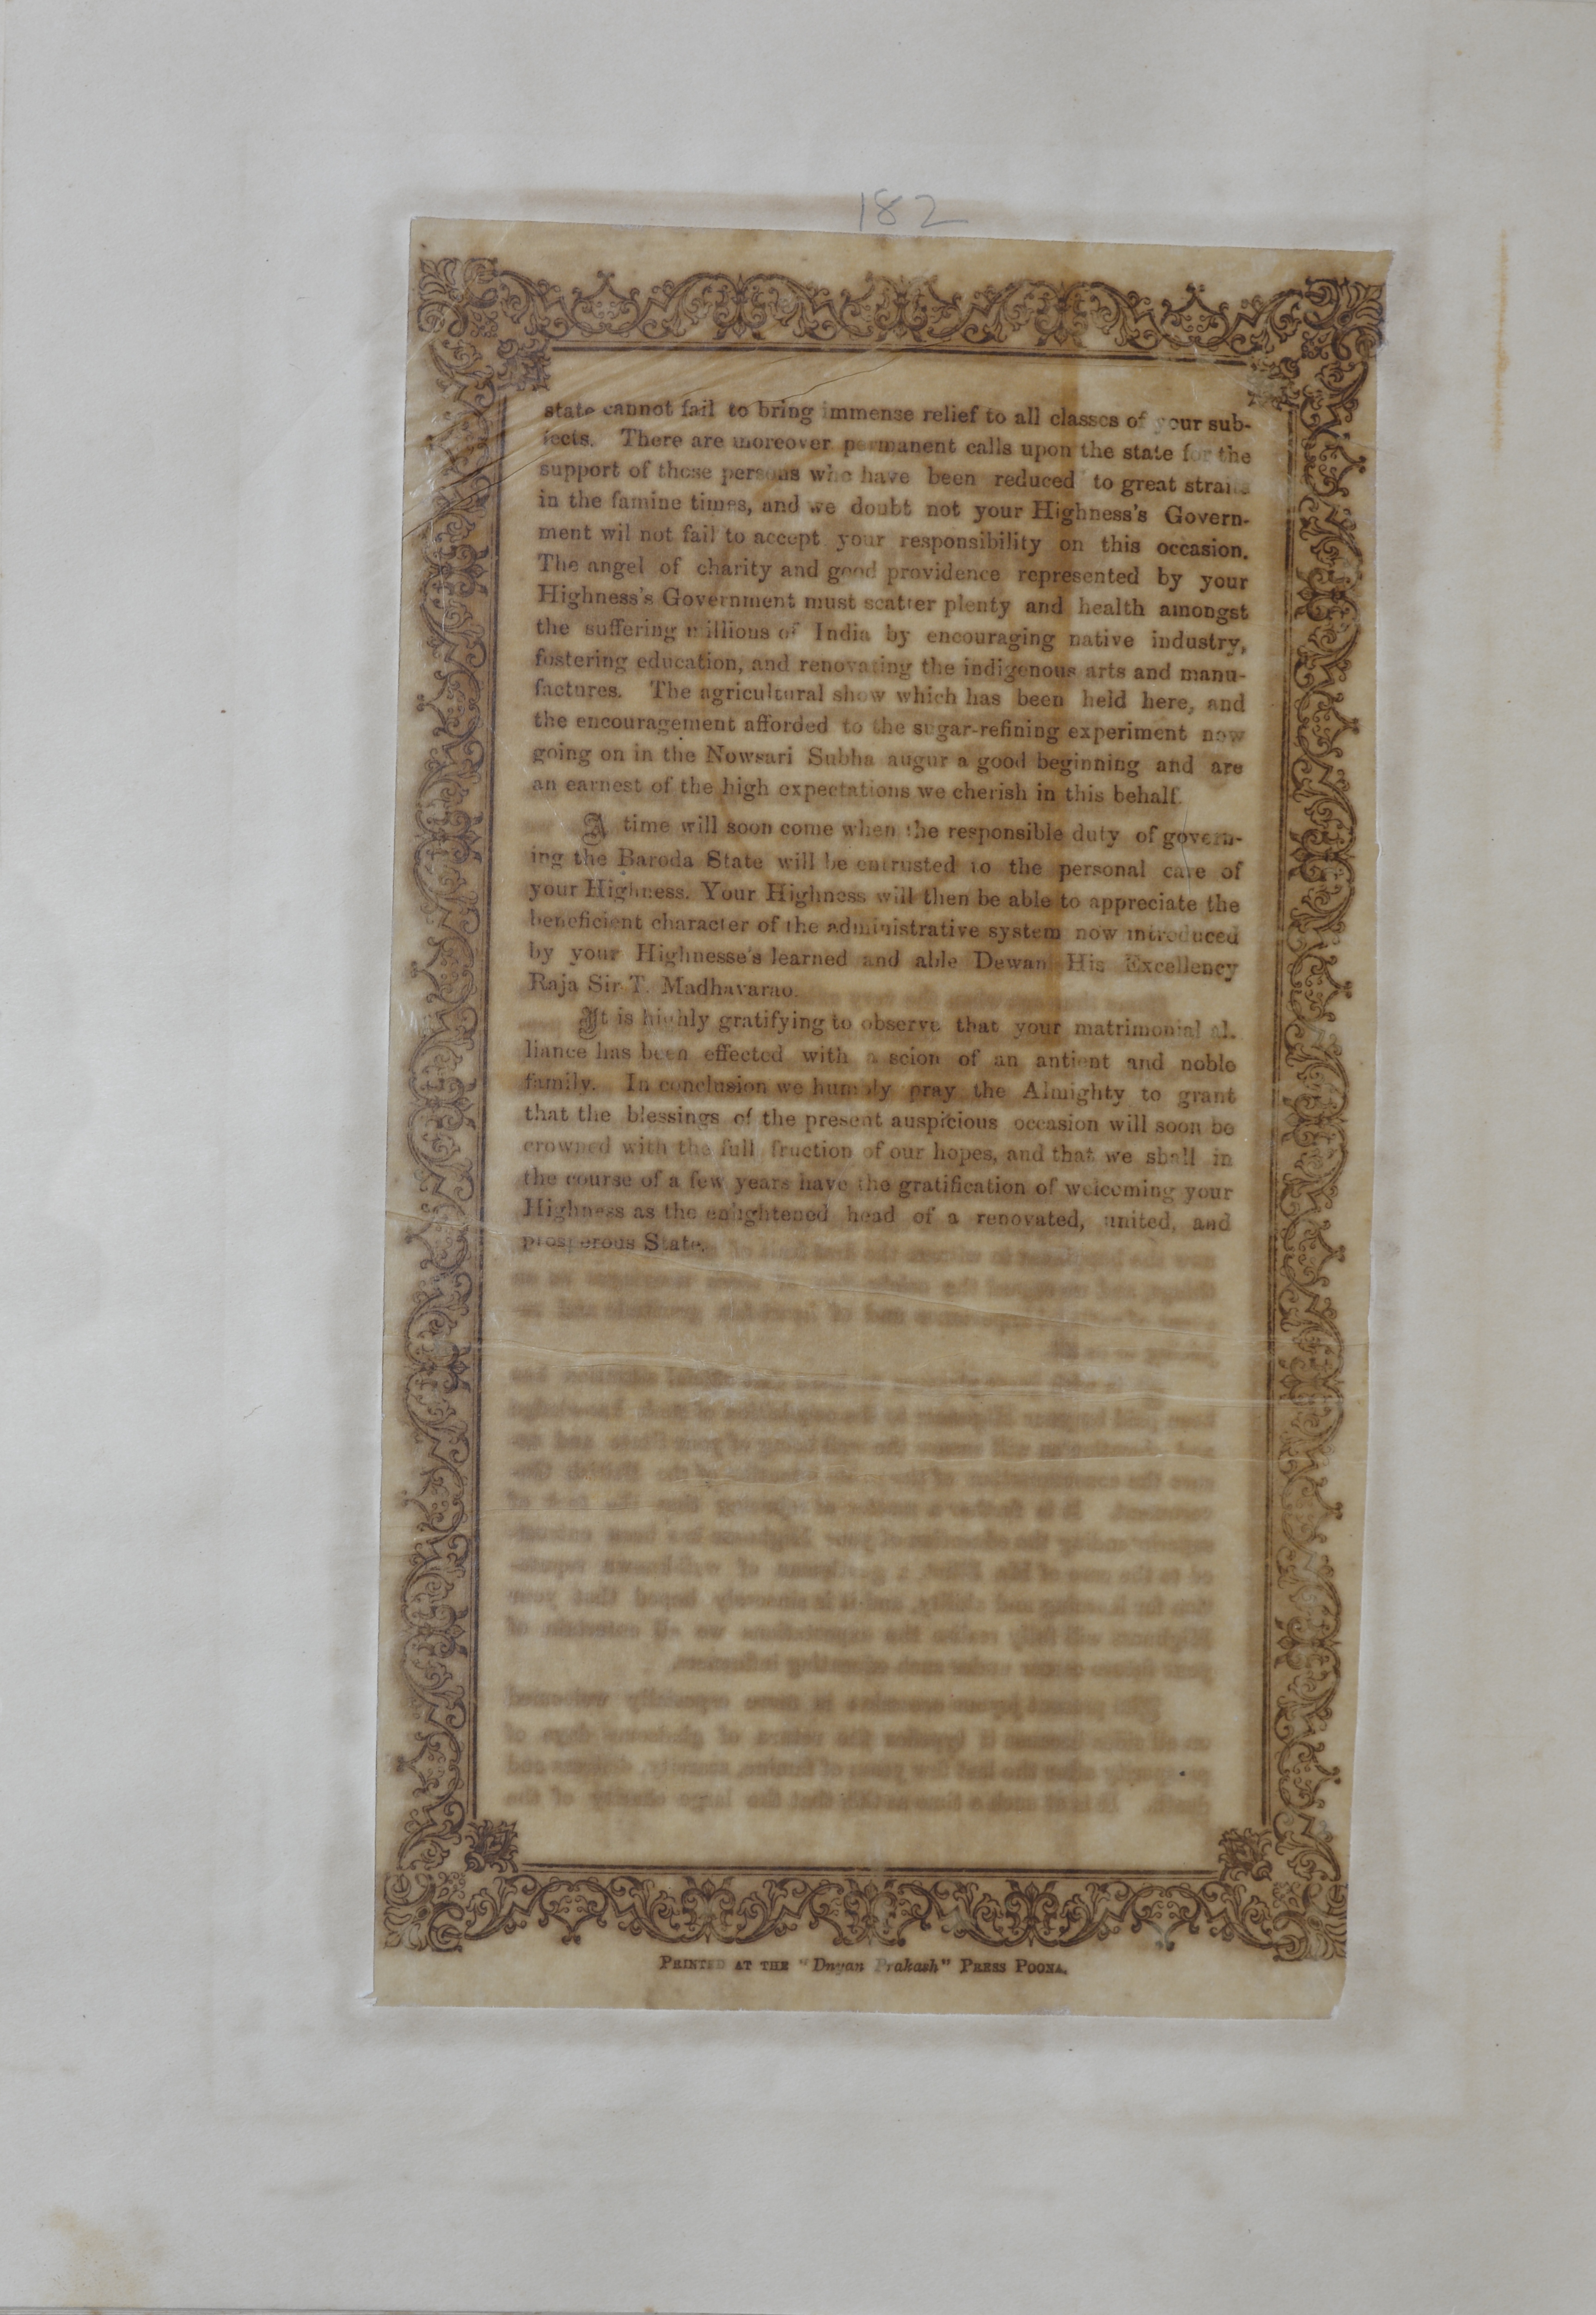 182
state cannot fail to bring immense relief to all classes of your sub-
jects. There are moreover permanent calls upon the state for the
support of those persons who have been reduced to great straits
in the famine times, and we doubt not your Highness's Govern-
ment wil not fail to accept your responsibility on this occasion.
The angel of charity and good providence represented by your
Highness's Government must scatter plenty and health amongst
the suffering millions of India by encouraging native industry,
fostering education, and renovating the indigenous arts and manu-
factures. The agricultural show which has been held here, and
the encouragement afforded to the sugar-refining experiment now
going on in the Nowsari Subha augur a good beginning and are
an earnest of the high expectations we cherish in this behalf.
A time will soon come when the responsible duty of govern-
ing the Baroda State will be entrusted to the personal care of
your Highness. Your Highness will then be able to appreciate the
beneficient character of the administrative system now introduced
by your Highnesse's learned and able Dewan His Excellency
Raja Sir T. Madhavarao.
It is highly gratifying to observe that your matrimonial al-
liance has been effected with a scion of an antient and noble
family. In conclusion we humbly pray the Almighty to grant
that the blessings of the present auspicious occasion will soon be
crowned with the full fruction of our hopes, and that we shall in
the course of a few years have the gratification of welcoming your
Highness as the enlightened head of a renovated, united, and
prosperous State.
PRINTED AT THE "Dnyan Prakash" PRESS POONA.